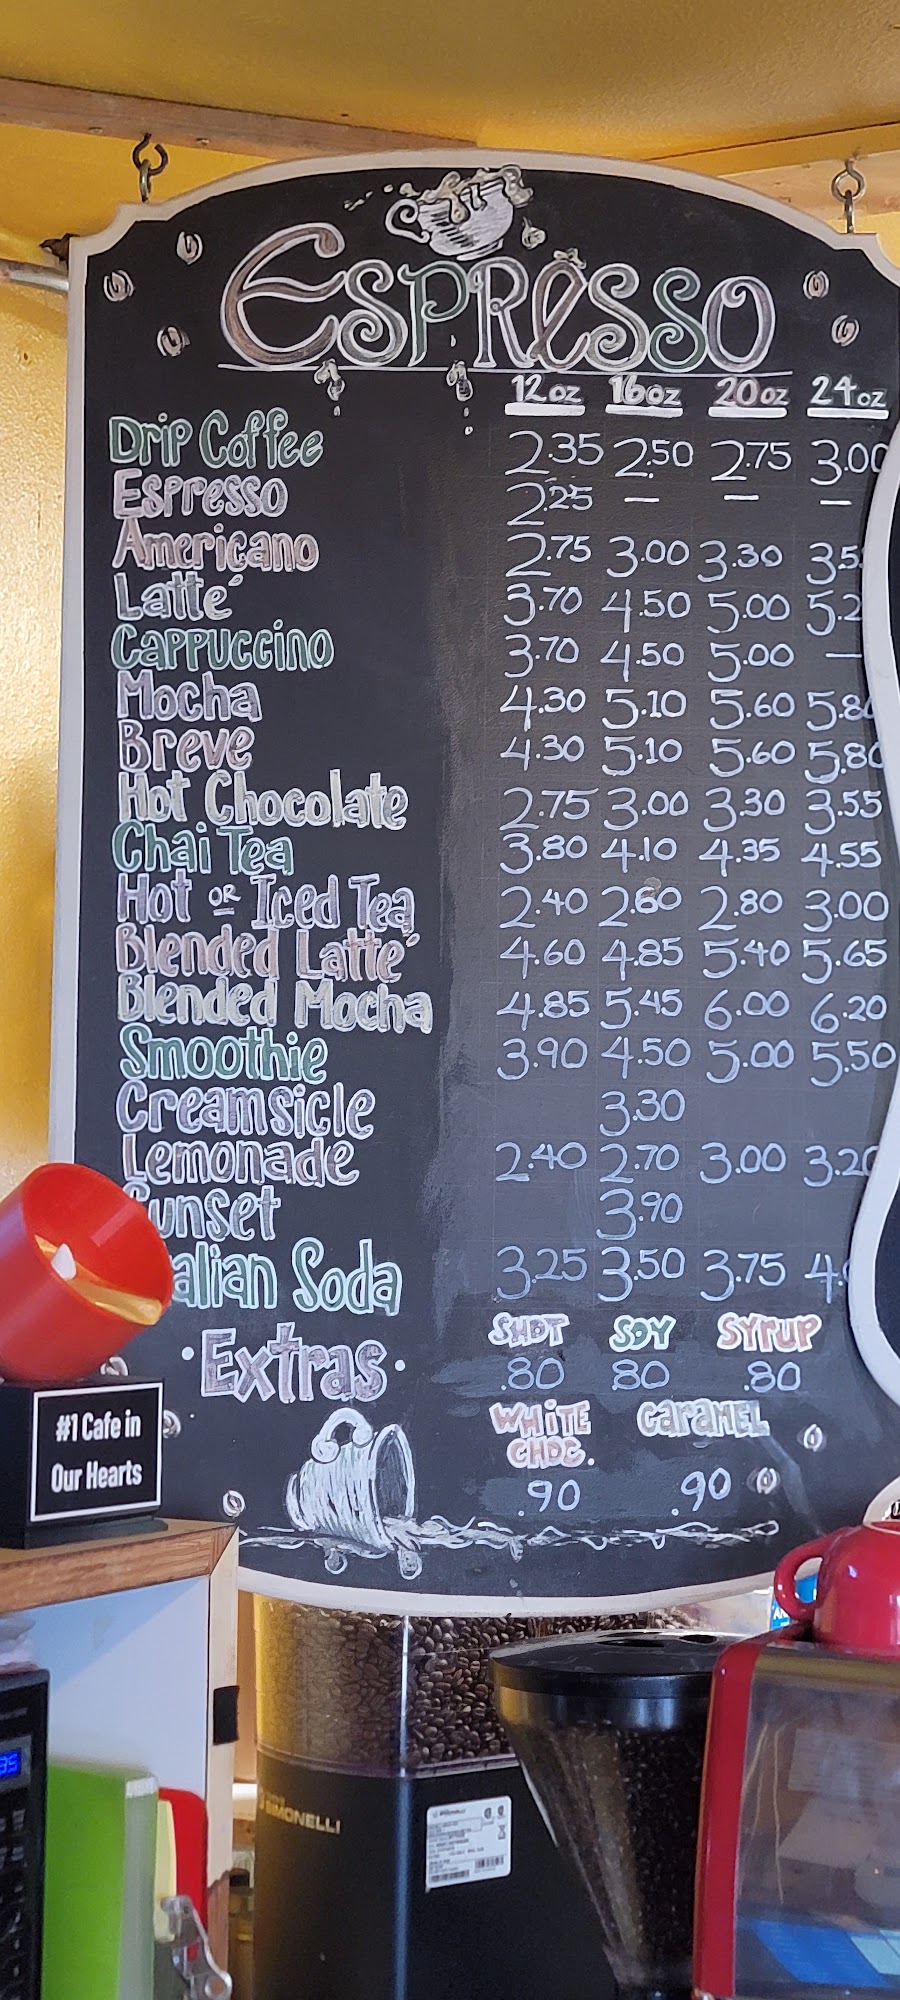 Espresso
12oz 16oz 20oz 24oz
Drip Coffee 2.35 2.50 2.75 3.00
Espresso 2.25 — — —
Americano 2.75 3.00 3.30 3.5
Latté 3.70 4.50 5.00 5.2
Cappuccino 3.70 4.50 5.00 —
Mocha 4.30 5.10 5.60 5.80
Breve 4.30 5.10 5.60 5.80
Hot Chocolate 2.75 3.00 3.30 3.55
Chai Tea 3.80 4.10 4.35 4.55
Hot or Iced Tea 2.40 2.60 2.80 3.00
Blended Latté 4.60 4.85 5.40 5.65
Blended Mocha 4.85 5.45 6.00 6.20
Smoothie 3.90 4.50 5.00 5.50
Creamsicle 3.30
Lemonade 2.40 2.70 3.00 3.20
Sunset 3.90
alian Soda 3.25 3.50 3.75 4.
SHOT SOY SYRUP
·Extras· .80 .80 .80
WHITE CHOC. CARAMEL
.90 .90
#1 Cafe in
Our Hearts
SIMONELLI